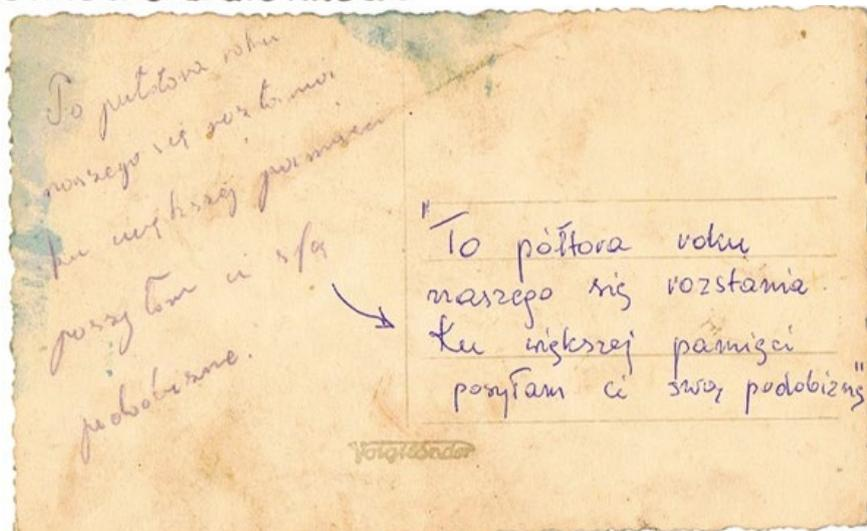 To pułtora roku
naszego się roztania
ku większej pamięci
posyłam ci sfą
podobizne.
"To półtora roku
naszego się rozstania.
Ku większej pamięci
posyłam ci swoją podobiznę"
Voigtländer